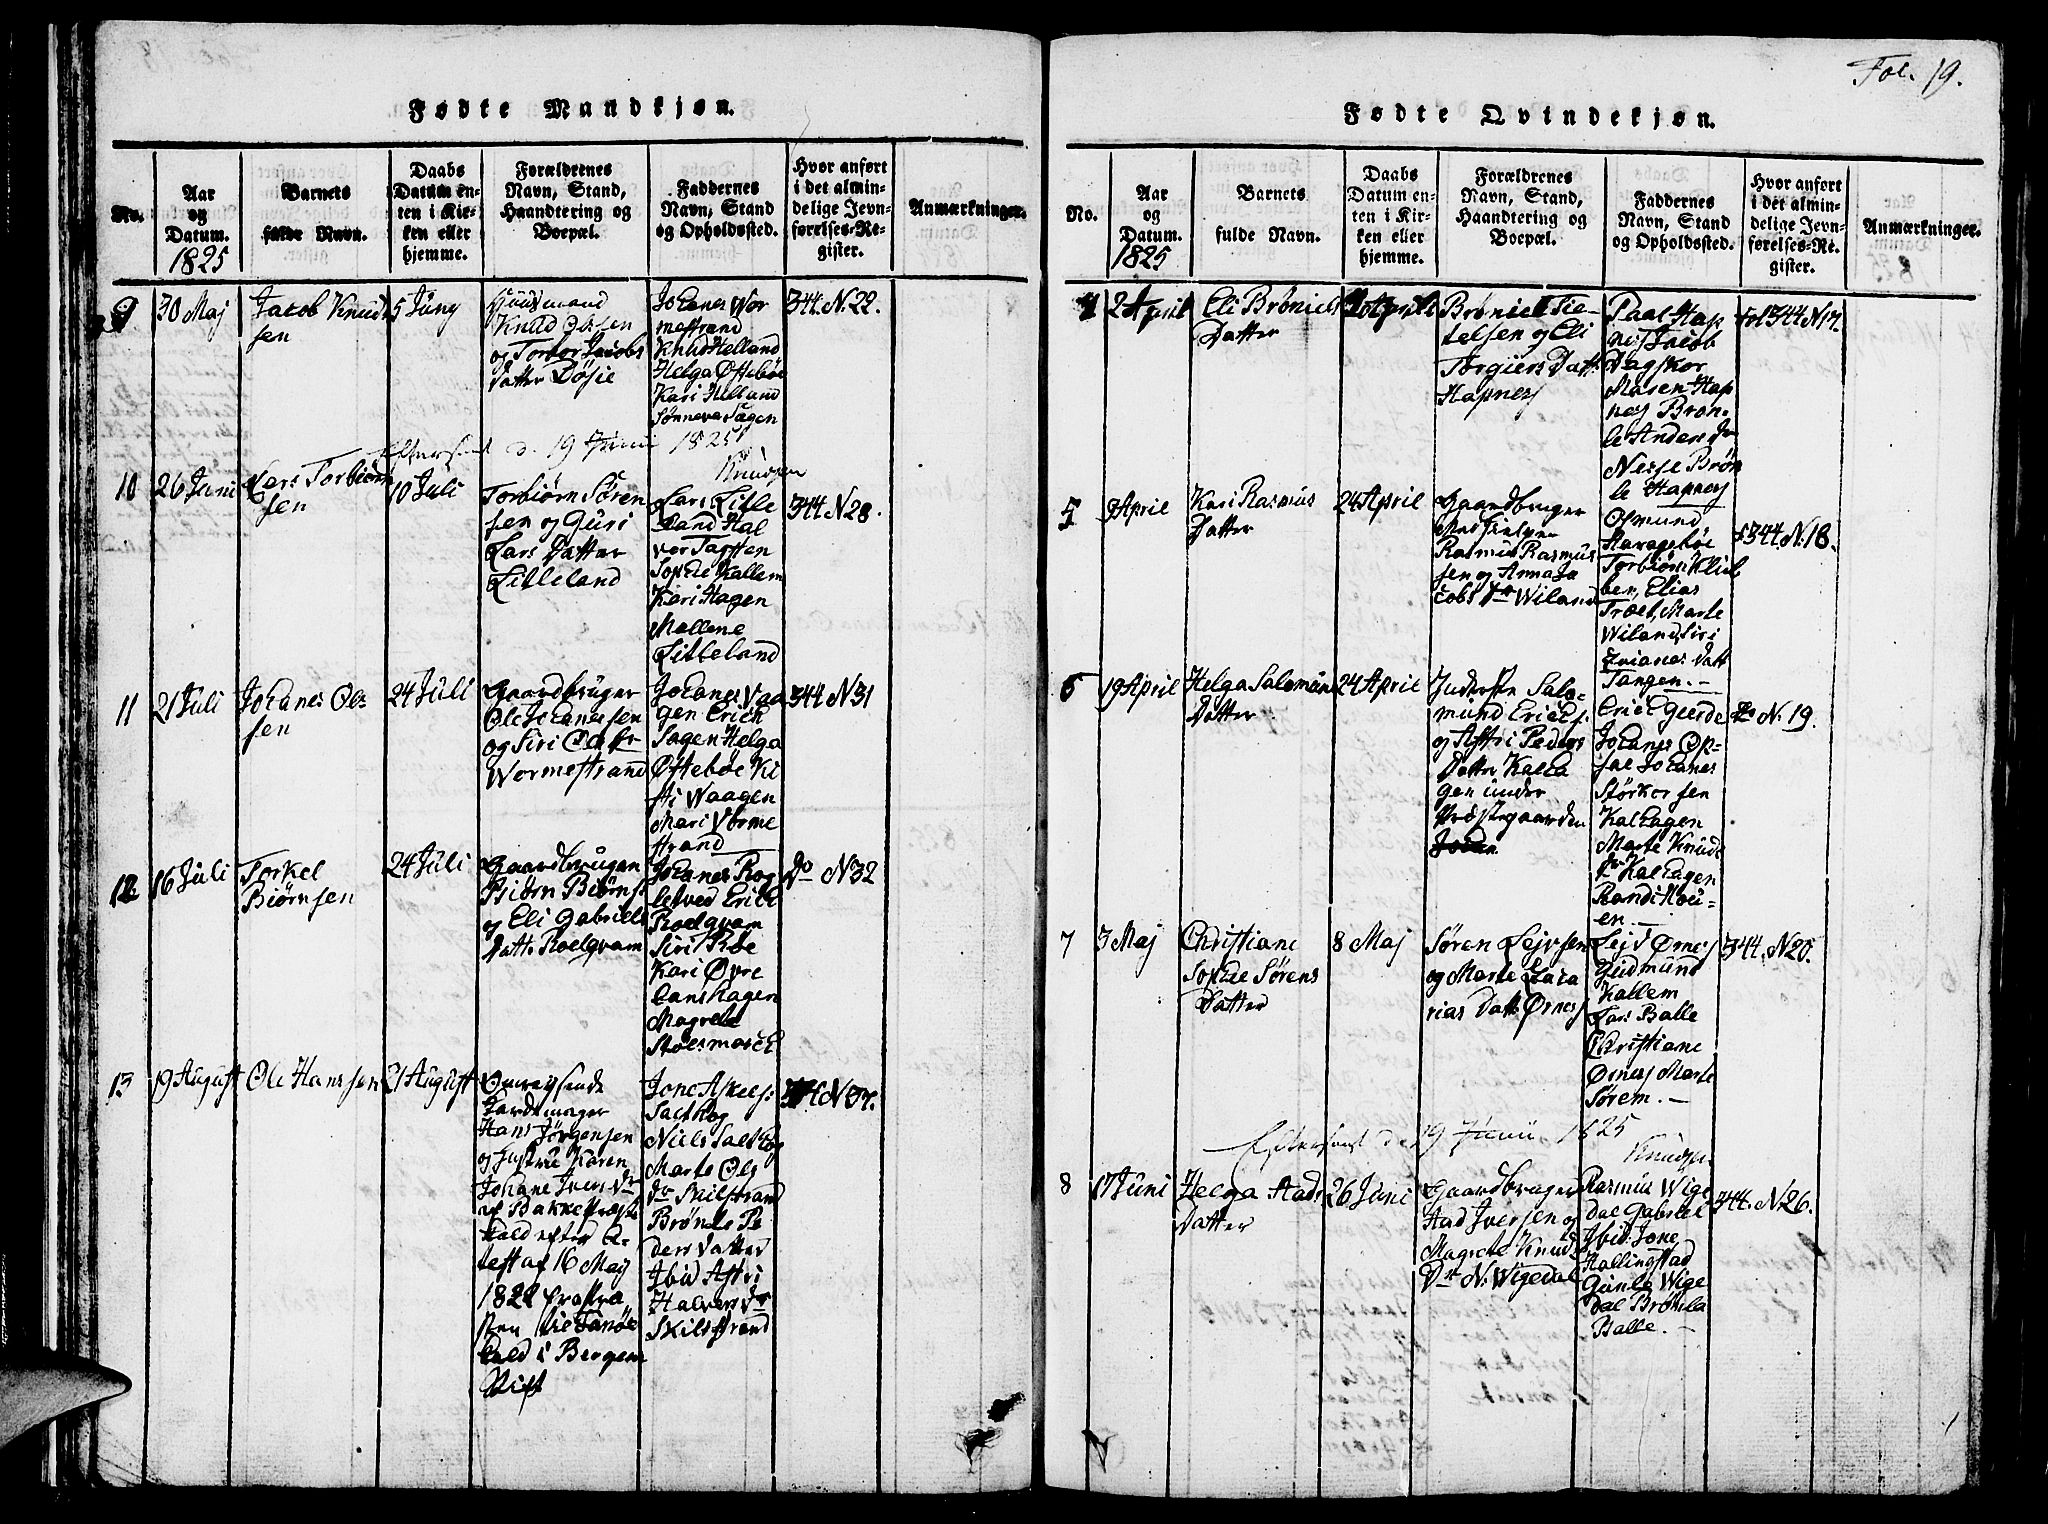 Fol. 19.
Fødte Mandkjøn.
No.
Aar
og
Datum.
1825
Barnets
fulde Navn.
Daabs
Datum en-
ten i Kir-
ken eller
hjemme.
Forældrenes
Navn, Stand,
Haandtering og
Boepæl.
Faddernes
Navn, Stand
og Opholdssted.
Hvor anført
i det almin-
delige Jevn-
førelses-Re-
gister.
Anmærkninger.
9
30 Maj
Jacob Knud-
sen
5 Juny
Huusmand
Knud Olsen
og Torbor Jacobs
Datter Døsie
Johanes Wor
mestrand
Knud Helland
Helga Østebøe
Kari Helland
Sønneva Sagen
344. N. 22.
Efterseet d. 19 Junii 1825
Knudsen
10
26 Juni
Lars Torbiørn
sen
10 Juli
Torbiørn Søren
sen og Guri
Lars Datter
Lilleland
Lars Lille
land Hal
vor Tasten
Sophie Kallem
Kari Hagen
Mallene
Lilleland
344 N 28.
11
21 Juli
Johanes Ols
sen
24 Juli
Gaardbruger
Ole Johanessen
og Siri
Wormestrand
Johanes Vaa
gen Erich
Sagen Helga
Østebøe Ki
sti Waagen
Mari Vorme
strand
344 N 31
12
16 Juli
Torkel
Biørnsen
24 Juli
Gaardbruger
Biørn Biørns.
og Eli Gabriels
Datt. Roelqvam
Johanes Rog
letved Erich
Roelqvam
Siri Røe
Kari Øvre
Magrete
Do N 32
13
19 August
Ole Hanssen
21 August
Omreysende
Hans Jørgensen
og hustrue Karen
Johane Ivers Dr
af Bakke Præste
Giæld efter At-
test af 16 Maj
1822
i Bergens
Stift
Jone Askels.
Salthog
Niels Salthog
Marte Ols
Dr Skilstrand
Brønle Pe
ders Datter
Ibid Astri
Halvers Dr
Skilstrand
N 37.
Fødte Qvindekjøn.
No.
Aar
og
Datum.
1825
Barnets
fulde Navn.
Daabs
Datum en-
ten i Kir-
ken eller
hjemme.
Forældrenes
Navn, Stand,
Haandtering og
Boepæl.
Faddernes
Navn, Stand
og Opholdssted.
Hvor anført
i det almin-
delige Jevn-
førelses-Re-
gister.
Anmærkninger.
4
2 April
Eli Brøniels
Datter
Brøniel Tie-
telsen og Eli
Torgiers Datt.
Hapnes
Paal Hap
nes Jacob
Dagskor
Masen Hap
nes Brøn-
le Anders Dr
Nesse Brøn
le Hapnes
Fol 344 N 17.
5
9 April
Kari Rasmus
Datter
24 April
Gaardbruger
Rasmus Rasmus
sen og Anna Ja
cobs Dr Wiland
Osmund
Haragebøe
Torbiørn Klub
ben, Elias
Træet, Marte
Wiland, Siri
Datt
Tangen. —
F 344. N. 18.
6
19 April
Helga Salomuns
Datter
24 April
Indersten Salo-
mund Erichs.
og Astri Peders
Datter Kalha
gen under
Præstegaarden
Erich Gierde
Johanes Op-
sal Johanes
Størkorsen
Kalhagen
Marte Knuds
Dr Kalhagen
Randi Høi-
en. —
N. 19.
7
3 Maj
Christiane
Sophie Sørens
Datter
8 Maj
Søren Lejvsen
og Marte Zaca
rias Datt. Ørnes
Lejv Ørnes
Gudmund
Kallem
Lars Balle
Christiane
Ørnes Marte
Sørem. —
344. N 20.
Efterseet d. 19 Junii 1825
Knudsen
8
17 Juni
Helga Aads
Datter
26 Juni
Gaardbruger
Aad Iversen og
Magrete Knuds
Dr N. Wigedal
Rasmus Wige
dal Gabriel
Ibid. Jone
Hallingstad
Gunla Wige
dal Brønla
Balle. —
344. N. 26.